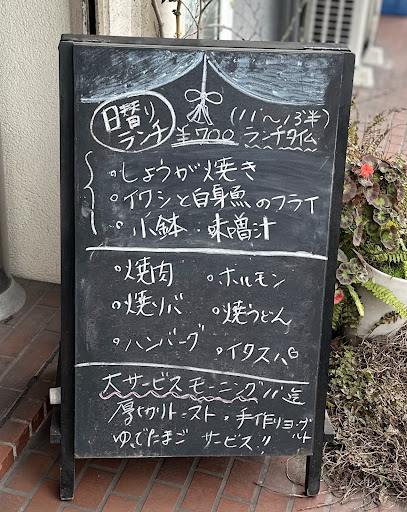 日替り
ランチ ¥700 (11〜13半) ランチタイム
○しょうが焼き
○イワシと白身魚のフライ
○小鉢・味噌汁
○焼肉 ○ホルモン
○焼ソバ ○焼うどん
○ハンバーグ ○イタスパ
大サービスモーニング 11迄
厚切りトースト・手作りヨーグルト
ゆでたまご サービス!!